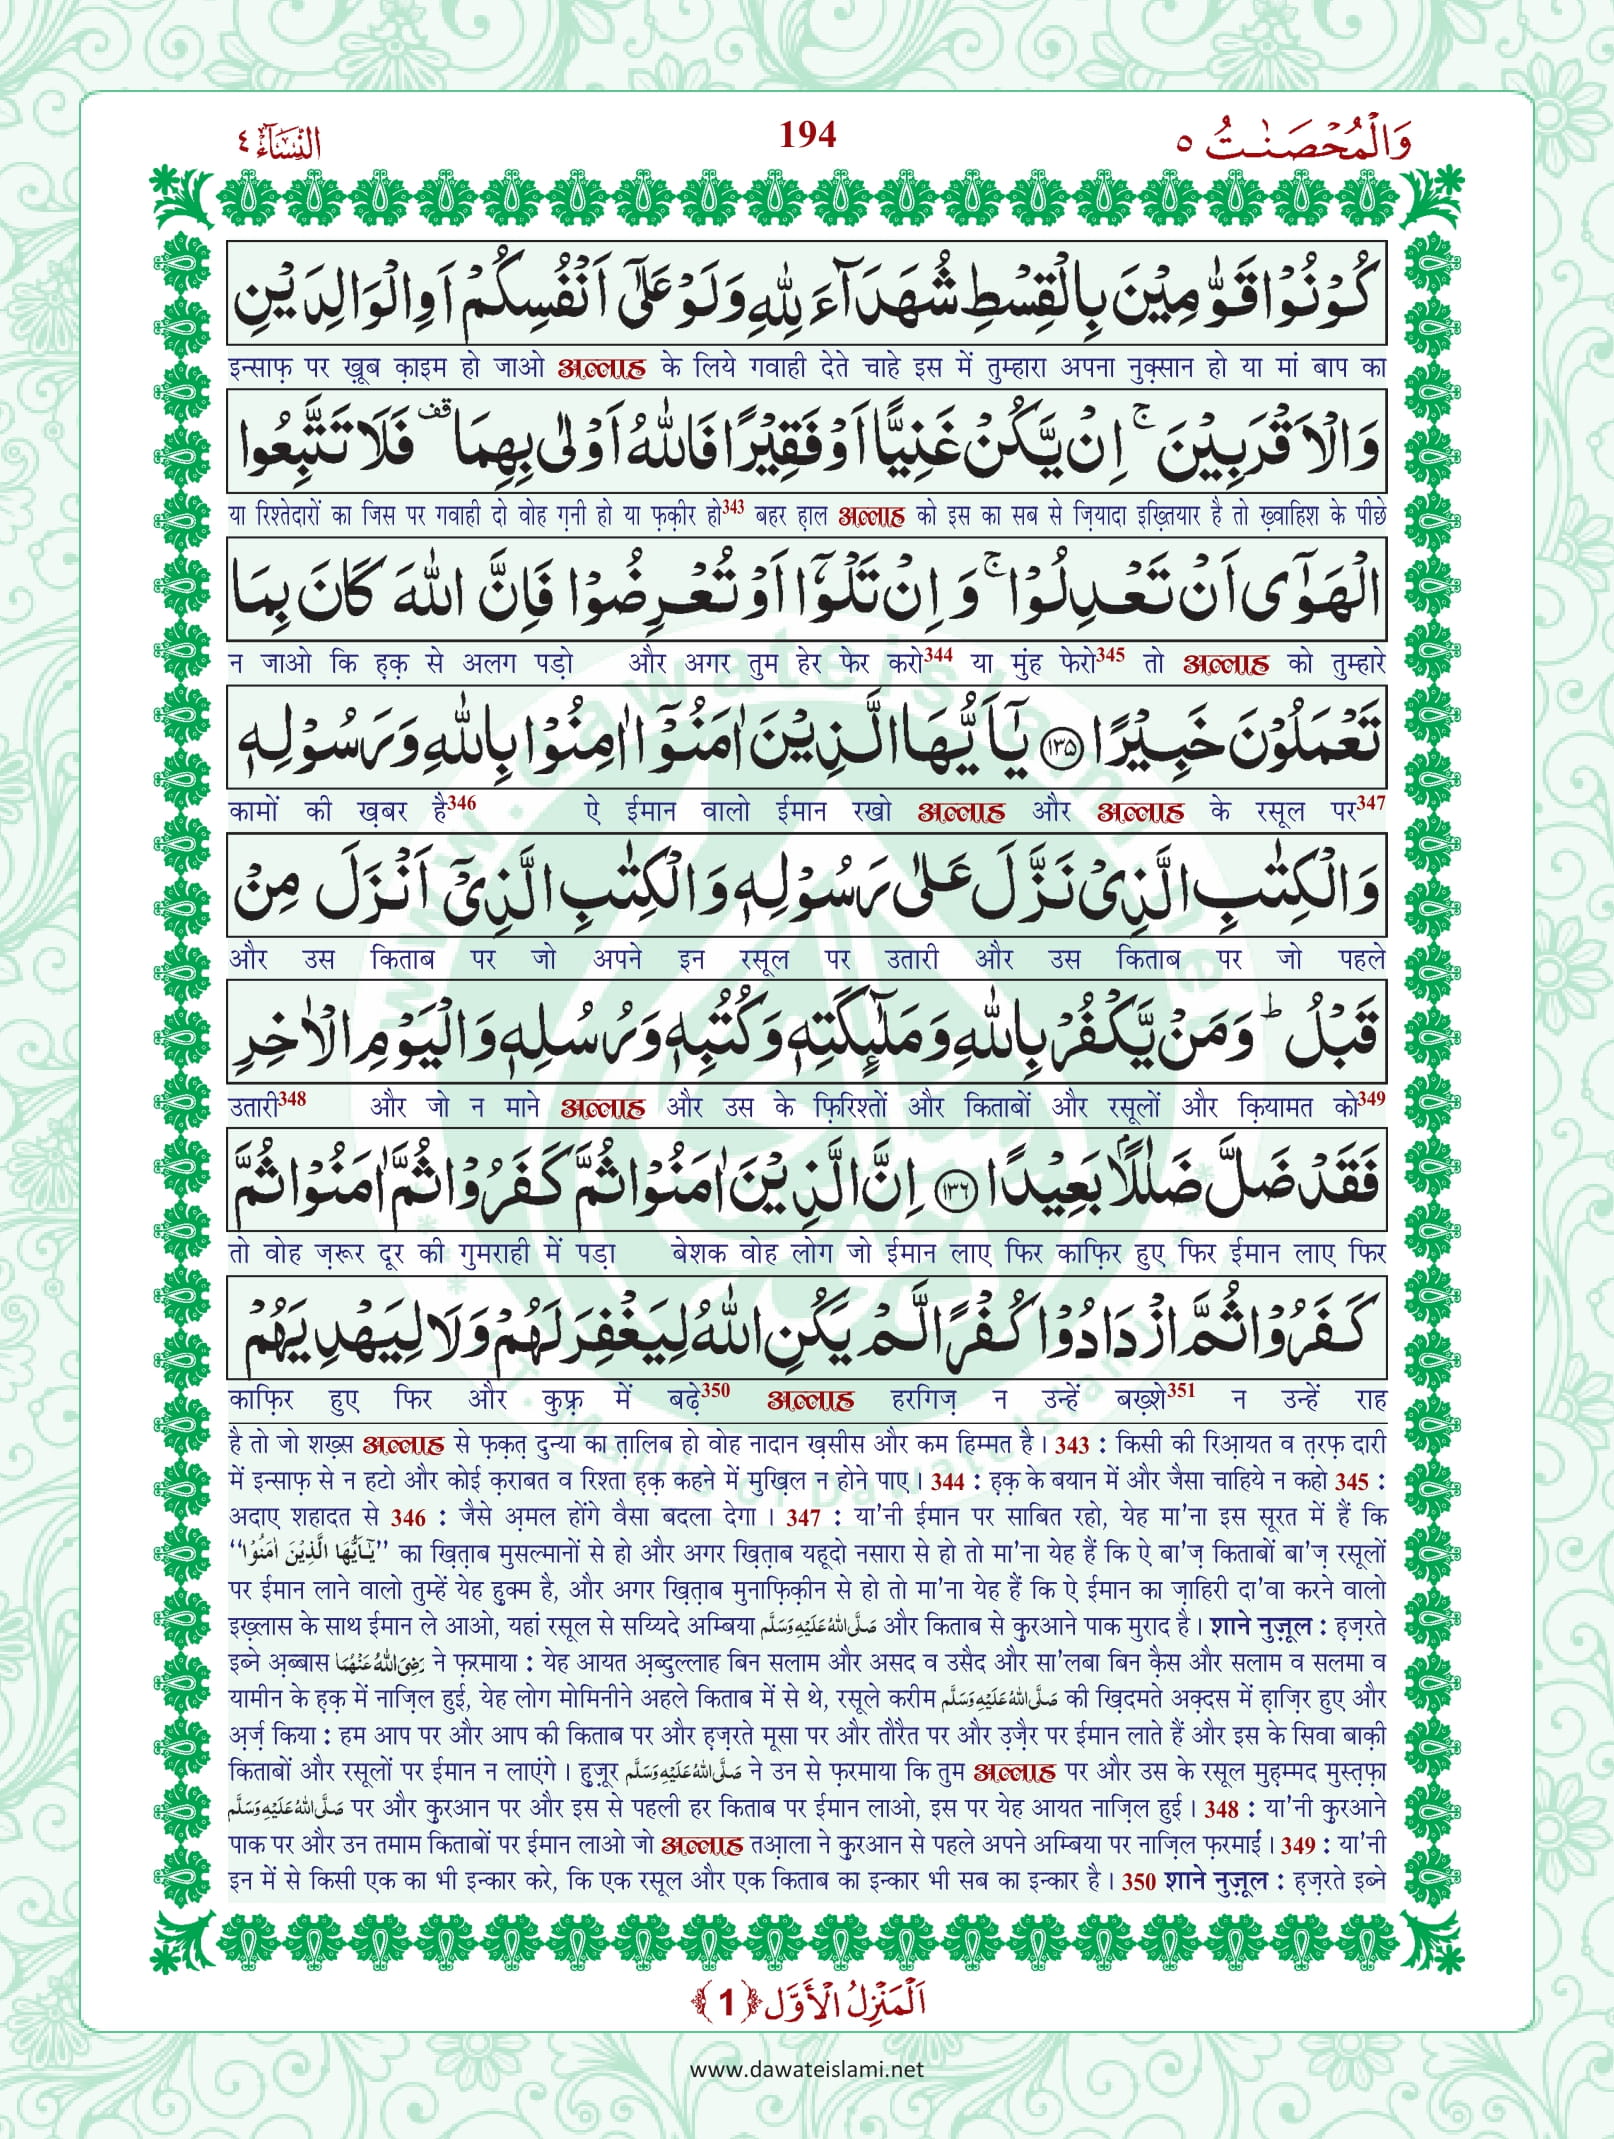 وَالْمُحْصَنٰتُ ٥
194
النِّسَآءُ ٤
كُوْنُوْا قَوّٰمِیْنَ بِالْقِسْطِ شُهَدَآءَ لِلّٰهِ وَ لَوْ عَلٰۤى اَنْفُسِكُمْ اَوِ الْوَالِدَیْنِ
इन्साफ़ पर ख़ूब क़ाइम हो जाओ अल्लाह के लिये गवाही देते चाहे इस में तुम्हारा अपना नुक़्सान हो या मां बाप का
وَ الْاَقْرَبِیْنَ ۚ اِنْ یَّكُنْ غَنِیًّا اَوْ فَقِیْرًا فَاللّٰهُ اَوْلٰى بِهِمَا ۫ قف فَلَا تَتَّبِعُوا
या रिश्तेदारों का जिस पर गवाही दो वोह ग़नी हो या फ़क़ीर हो343 बहर ह़ाल अल्लाह को इस का सब से ज़ियादा इख़्तियार है तो ख़्वाहिश के पीछे
الْهَوٰۤى اَنْ تَعْدِلُوْا ۚ وَ اِنْ تَلْوٗۤا اَوْ تُعْرِضُوْا فَاِنَّ اللّٰهَ كَانَ بِمَا
न जाओ कि ह़क़ से अलग पड़ो और अगर तुम हेर फेर करो344 या मुंह फेरो345 तो अल्लाह को तुम्हारे
تَعْمَلُوْنَ خَبِیْرًا ﴿۱۳۵﴾ یٰۤاَیُّهَا الَّذِیْنَ اٰمَنُوْۤا اٰمِنُوْا بِاللّٰهِ وَ رَسُوْلِهٖ
कामों की ख़बर है346 ऐ ईमान वालो ईमान रखो अल्लाह और अल्लाह के रसूल पर347
وَ الْكِتٰبِ الَّذِیْ نَزَّلَ عَلٰى رَسُوْلِهٖ وَ الْكِتٰبِ الَّذِیْۤ اَنْزَلَ مِنْ
और उस किताब पर जो अपने इन रसूल पर उतारी और उस किताब पर जो पहले
قَبْلُ ؕ وَ مَنْ یَّكْفُرْ بِاللّٰهِ وَ مَلٰٓىِٕكَتِهٖ وَ كُتُبِهٖ وَ رُسُلِهٖ وَ الْیَوْمِ الْاٰخِرِ
उतारी348 और जो न माने अल्लाह और उस के फ़िरिश्तों और किताबों और रसूलों और क़ियामत को349
فَقَدْ ضَلَّ ضَلٰلًۢا بَعِیْدًا ﴿۱۳۶﴾ اِنَّ الَّذِیْنَ اٰمَنُوْا ثُمَّ كَفَرُوْا ثُمَّ اٰمَنُوْا ثُمَّ
तो वोह ज़रूर दूर की गुमराही में पड़ा बेशक वोह लोग जो ईमान लाए फिर काफ़िर हुए फिर ईमान लाए फिर
كَفَرُوْا ثُمَّ ازْدَادُوْا كُفْرًا لَّمْ یَكُنِ اللّٰهُ لِیَغْفِرَ لَهُمْ وَ لَا لِیَهْدِیَهُمْ
काफ़िर हुए फिर और कुफ़्र में बढ़े350 अल्लाह हरगिज़ न उन्हें बख़्शे351 न उन्हें राह
है तो जो शख़्स अल्लाह से फ़क़त़ दुन्या का त़ालिब हो वोह नादान ख़सीस और कम हिम्मत है। 343 : किसी की रिआ़यत व त़रफ़ दारी
में इन्साफ़ से न हटो और कोई क़राबत व रिश्ता ह़क़ कहने में मुख़िल न होने पाए। 344 : ह़क़ के बयान में और जैसा चाहिये न कहो 345 :
अदाए शहादत से 346 : जैसे अ़मल होंगे वैसा बदला देगा। 347 : या'नी ईमान पर साबित रहो, येह मा'ना इस सूरत में हैं कि
“یٰۤاَیُّهَا الَّذِیْنَ اٰمَنُوْا” का ख़ित़ाब मुसल्मानों से हो और अगर ख़ित़ाब यहूदो नसारा से हो तो मा'ना येह हैं कि ऐ बा'ज़ किताबों बा'ज़ रसूलों
पर ईमान लाने वालो तुम्हें येह हुक्म है, और अगर ख़ित़ाब मुनाफ़िक़ीन से हो तो मा'ना येह हैं कि ऐ ईमान का ज़ाहिरी दा'वा करने वालो
इख़्लास के साथ ईमान ले आओ, यहां रसूल से सय्यिदे अम्बिया صَلَّى اللّٰهُ عَلَيْهِ وَسَلَّم और किताब से क़ुरआने पाक मुराद है। शाने नुज़ूल : ह़ज़रते
इब्ने अ़ब्बास رَضِیَ اللّٰهُ عَنْهُمَا ने फ़रमाया : येह आयत अ़ब्दुल्लाह बिन सलाम और असद व उसैद और सा'लबा बिन क़ैस और सलाम व सलमा व
यामीन के ह़क़ में नाज़िल हुई, येह लोग मोमिनीने अहले किताब में से थे, रसूले करीम صَلَّى اللّٰهُ عَلَيْهِ وَسَلَّم की ख़िदमते अक़्दस में ह़ाज़िर हुए और
अ़र्ज़ किया : हम आप पर और आप की किताब पर और ह़ज़रते मूसा पर और तौरैत पर और उ़ज़ैर पर ईमान लाते हैं और इस के सिवा बाक़ी
किताबों और रसूलों पर ईमान न लाएंगे। हुज़ूर صَلَّى اللّٰهُ عَلَيْهِ وَسَلَّم ने उन से फ़रमाया कि तुम अल्लाह पर और उस के रसूल मुह़म्मद मुस्त़फ़ा
صَلَّى اللّٰهُ عَلَيْهِ وَسَلَّم पर और क़ुरआन पर और इस से पहली हर किताब पर ईमान लाओ, इस पर येह आयत नाज़िल हुई। 348 : या'नी क़ुरआने
पाक पर और उन तमाम किताबों पर ईमान लाओ जो अल्लाह तआ़ला ने क़ुरआन से पहले अपने अम्बिया पर नाज़िल फ़रमाईं। 349 : या'नी
इन में से किसी एक का भी इन्कार करे, कि एक रसूल और एक किताब का इन्कार भी सब का इन्कार है। 350 शाने नुज़ूल : ह़ज़रते इब्ने
اَلْمَنْزِلُ الْاَوَّل ﴿1﴾
www.dawateislami.net